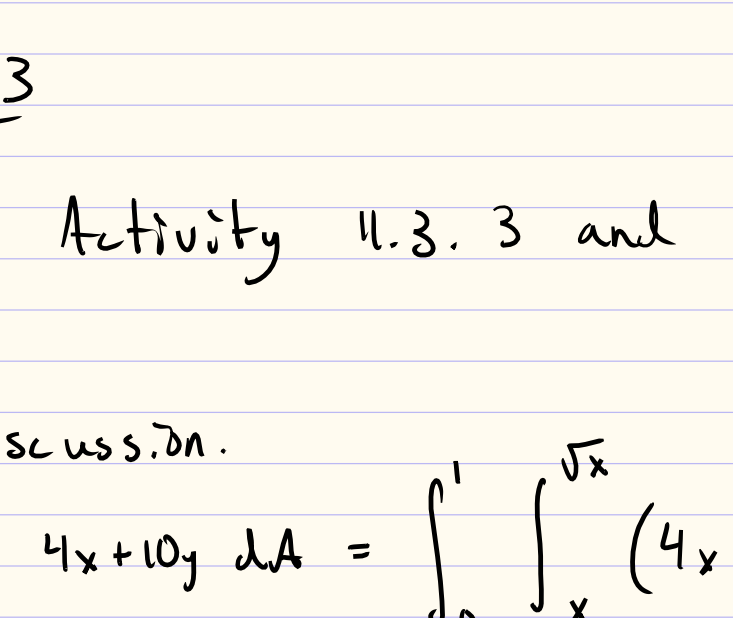 3
Activity 11.3.3 and
scussion.
4x+10y dA = ∫₀¹ ∫ₓ^√x (4x